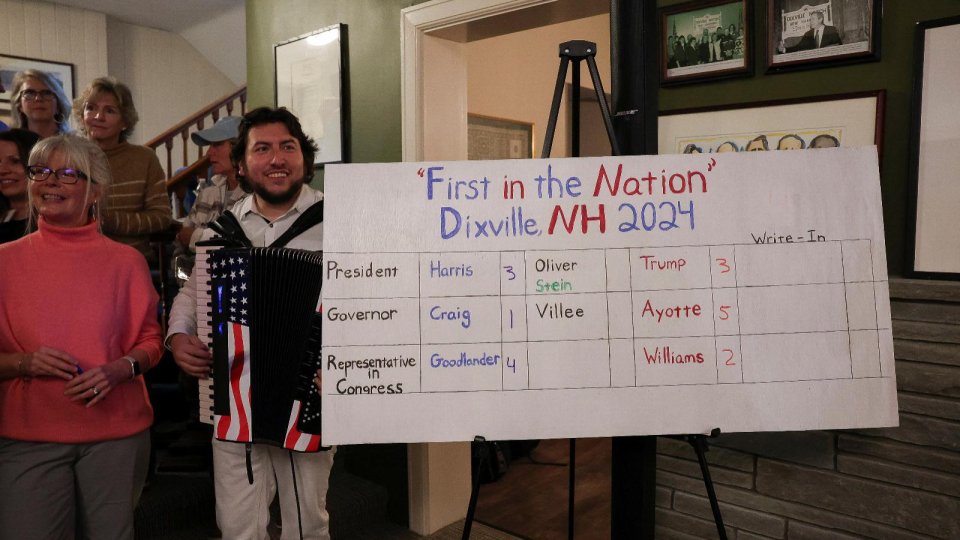 "First in the Nation"
Dixville, NH 2024
Write-In
President Harris 3 Oliver Trump 3
Stein
Governor Craig 1 Villee Ayotte 5
Representative in Congress Goodlander 4 Williams 2